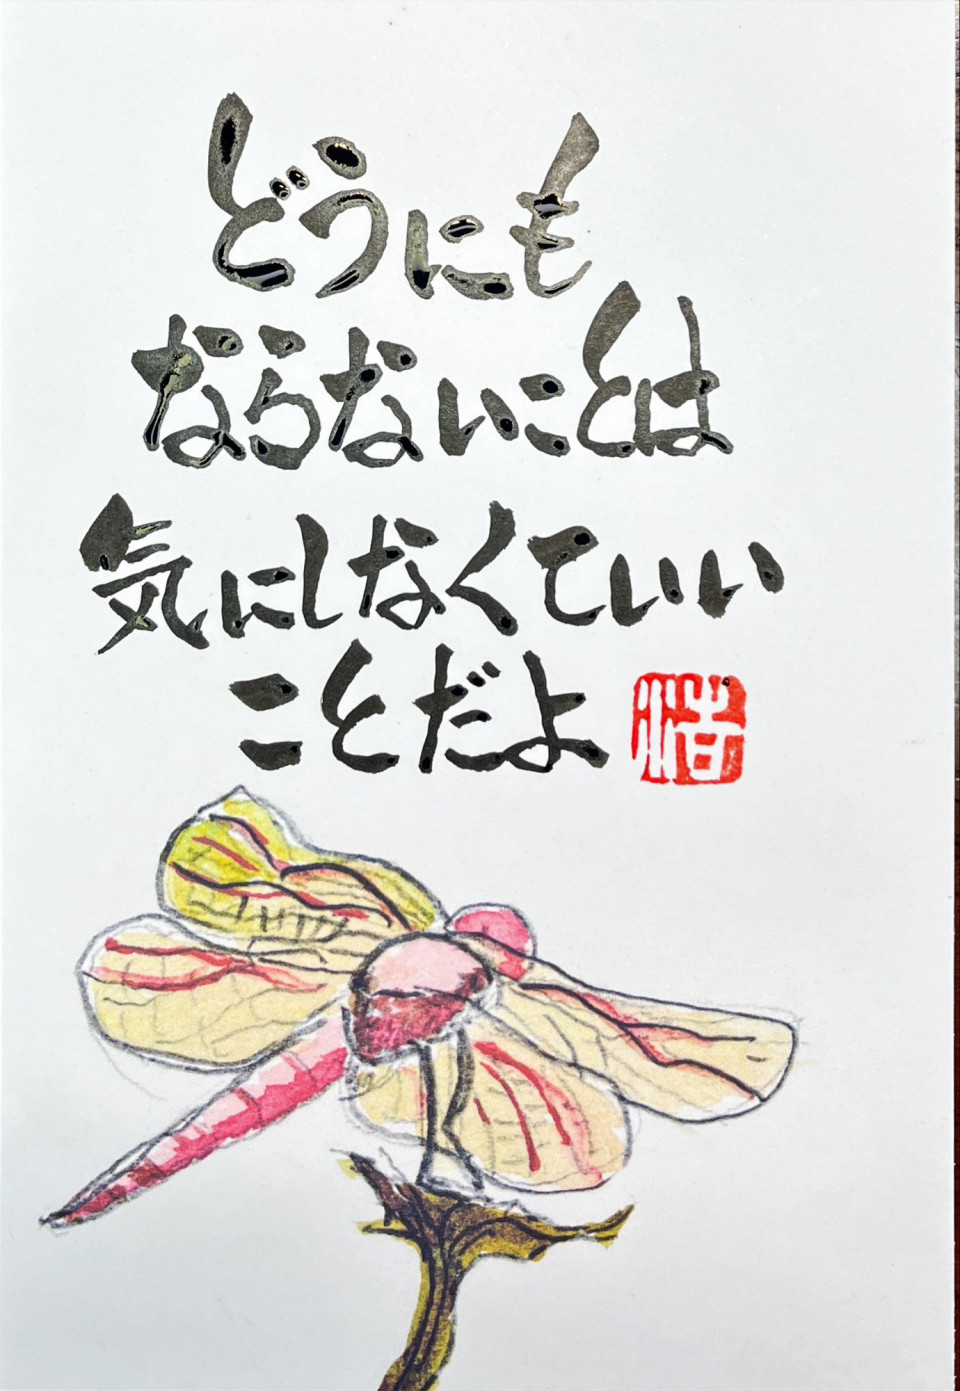 どうにも
ならないことは
気にしなくていい
ことだよ
浩